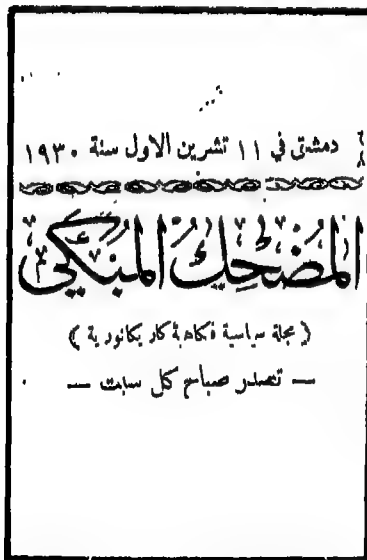 دمشق في ١١ تشرين الاول سنة ١٩٣٠
المُضْحِكُ المُبْكِي
( مجلة سياسية فكاهية كاريكاتورية )
— تصدر صباح كل سبت —